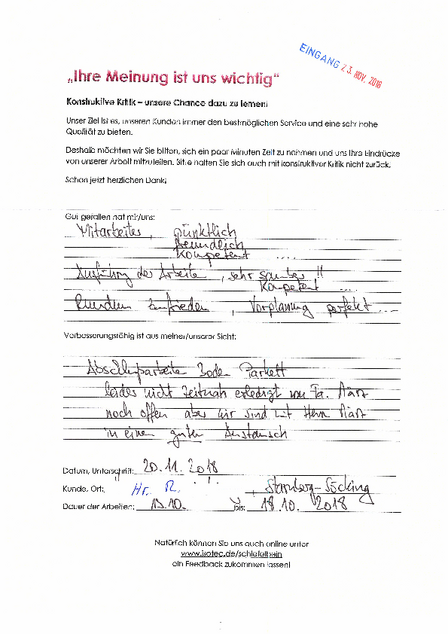 EINGANG 23. NOV. 2018
„Ihre Meinung ist uns wichtig“
Konstruktive Kritik – unsere Chance dazu zu lernen!
Unser Ziel ist es, unseren Kunden immer den bestmöglichen Service und eine sehr hohe
Qualität zu bieten.
Deshalb möchten wir Sie bitten, sich ein paar Minuten Zeit zu nehmen und uns Ihre Eindrücke
von unserer Arbeit mitzuteilen. Bitte halten Sie sich auch mit konstruktiver Kritik nicht zurück.
Schon jetzt herzlichen Dank!
Gut gefallen hat mir/uns:
Mitarbeiter, pünktlich
freundlich
Kompetent ....
Ausführung der Arbeiten, sehr sauber !!
Kompetent ...
Rundum zufrieden, Vorplanung perfekt ...
Verbesserungsfähig ist aus meiner/unserer Sicht:
Abschlußarbeiten Boden Parkett
leider nicht zeitnah erledigt von Fa.
noch offen aber wir sind mit Herrn
in einem guten Austausch
Datum, Unterschrift: 20.11.2018
Kunde, Ort: Hr. R. , Starnberg-Söcking
Dauer der Arbeiten: 15.10. bis: 18.10.2018
Natürlich können Sie uns auch online unter
www.isotec.de/schiefelbein
ein Feedback zukommen lassen!